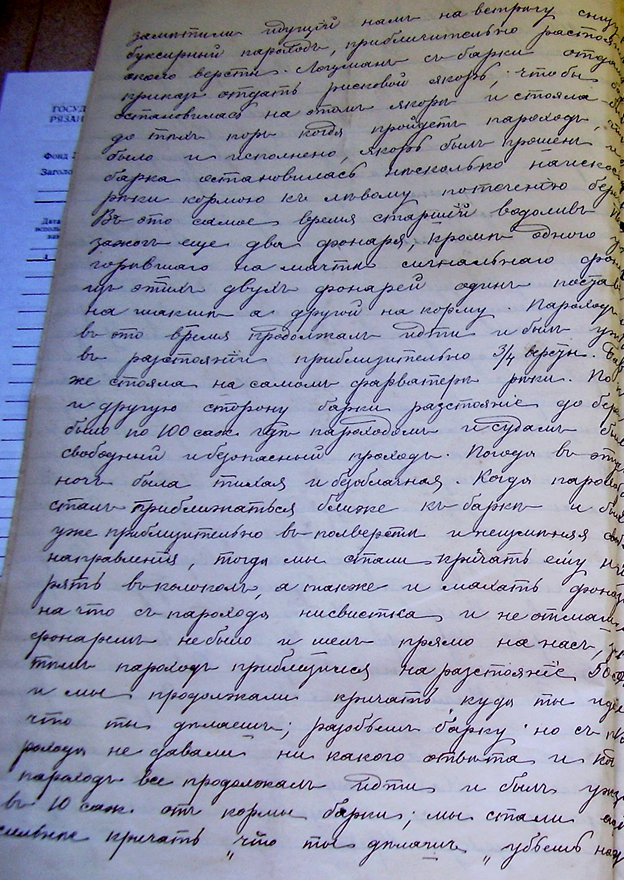 ГОСУД
РЯЗАН
Фонд
Заголо
Дата
исполь
замѣтили идущій намъ на встрѣчу
буксирный пароходъ, приблизительно разстоя
около версты. Лоцманъ съ барки отда
приказъ отдать рисковой якорь, чтобы
остановилась на этомъ якорѣ и стояла
до тѣхъ поръ когда пройдетъ пароходъ,
было и исполнено, якорь былъ брошенъ и
барка остановилась нѣсколько наискос
рѣки кормою къ лѣвому по теченію бер
Въ это самое время старшій водоливъ
зажогъ еще два фонаря, кромѣ одного
горѣвшаго на мачтѣ сигнальнаго фон
изъ этихъ двухъ фонарей одинъ постав
на а другой на корму. Пароходъ
въ это время продолжалъ идти и былъ уж
въ разстояніи приблизительно 3/4 версты. Ба
же стояла на самомъ фарватерѣ рѣки. По
и другую сторону барки разстояніе до бер
было по 100 саж. гдѣ пароходомъ и судамъ был
свободный и безопасный проходъ. Погода въ эту
ночь была тихая и безоблачная. Когда парохо
сталъ приближаться ближе къ баркѣ и был
уже приблизительно въ полверсты и неизмѣняя сво
направленія, тогда мы стали кричать ему и
рять въ колоколъ, а также и махать фонар
на что съ парохода ни свистка и не отмаш
фонаремъ не было и шелъ прямо на насъ, за
тѣмъ пароходъ приблизился на разстояніе 50 с
и мы продолжали кричать, куда ты иде
что ты дѣлаешь; разобьешь барку. но съ па
рохода не давали ни какого отвѣта и
пароходъ все продолжалъ идти и былъ уже
въ 10 саж. отъ кормы барки; мы стали
сильнѣе кричать „что ты дѣлаешь „ убьешь